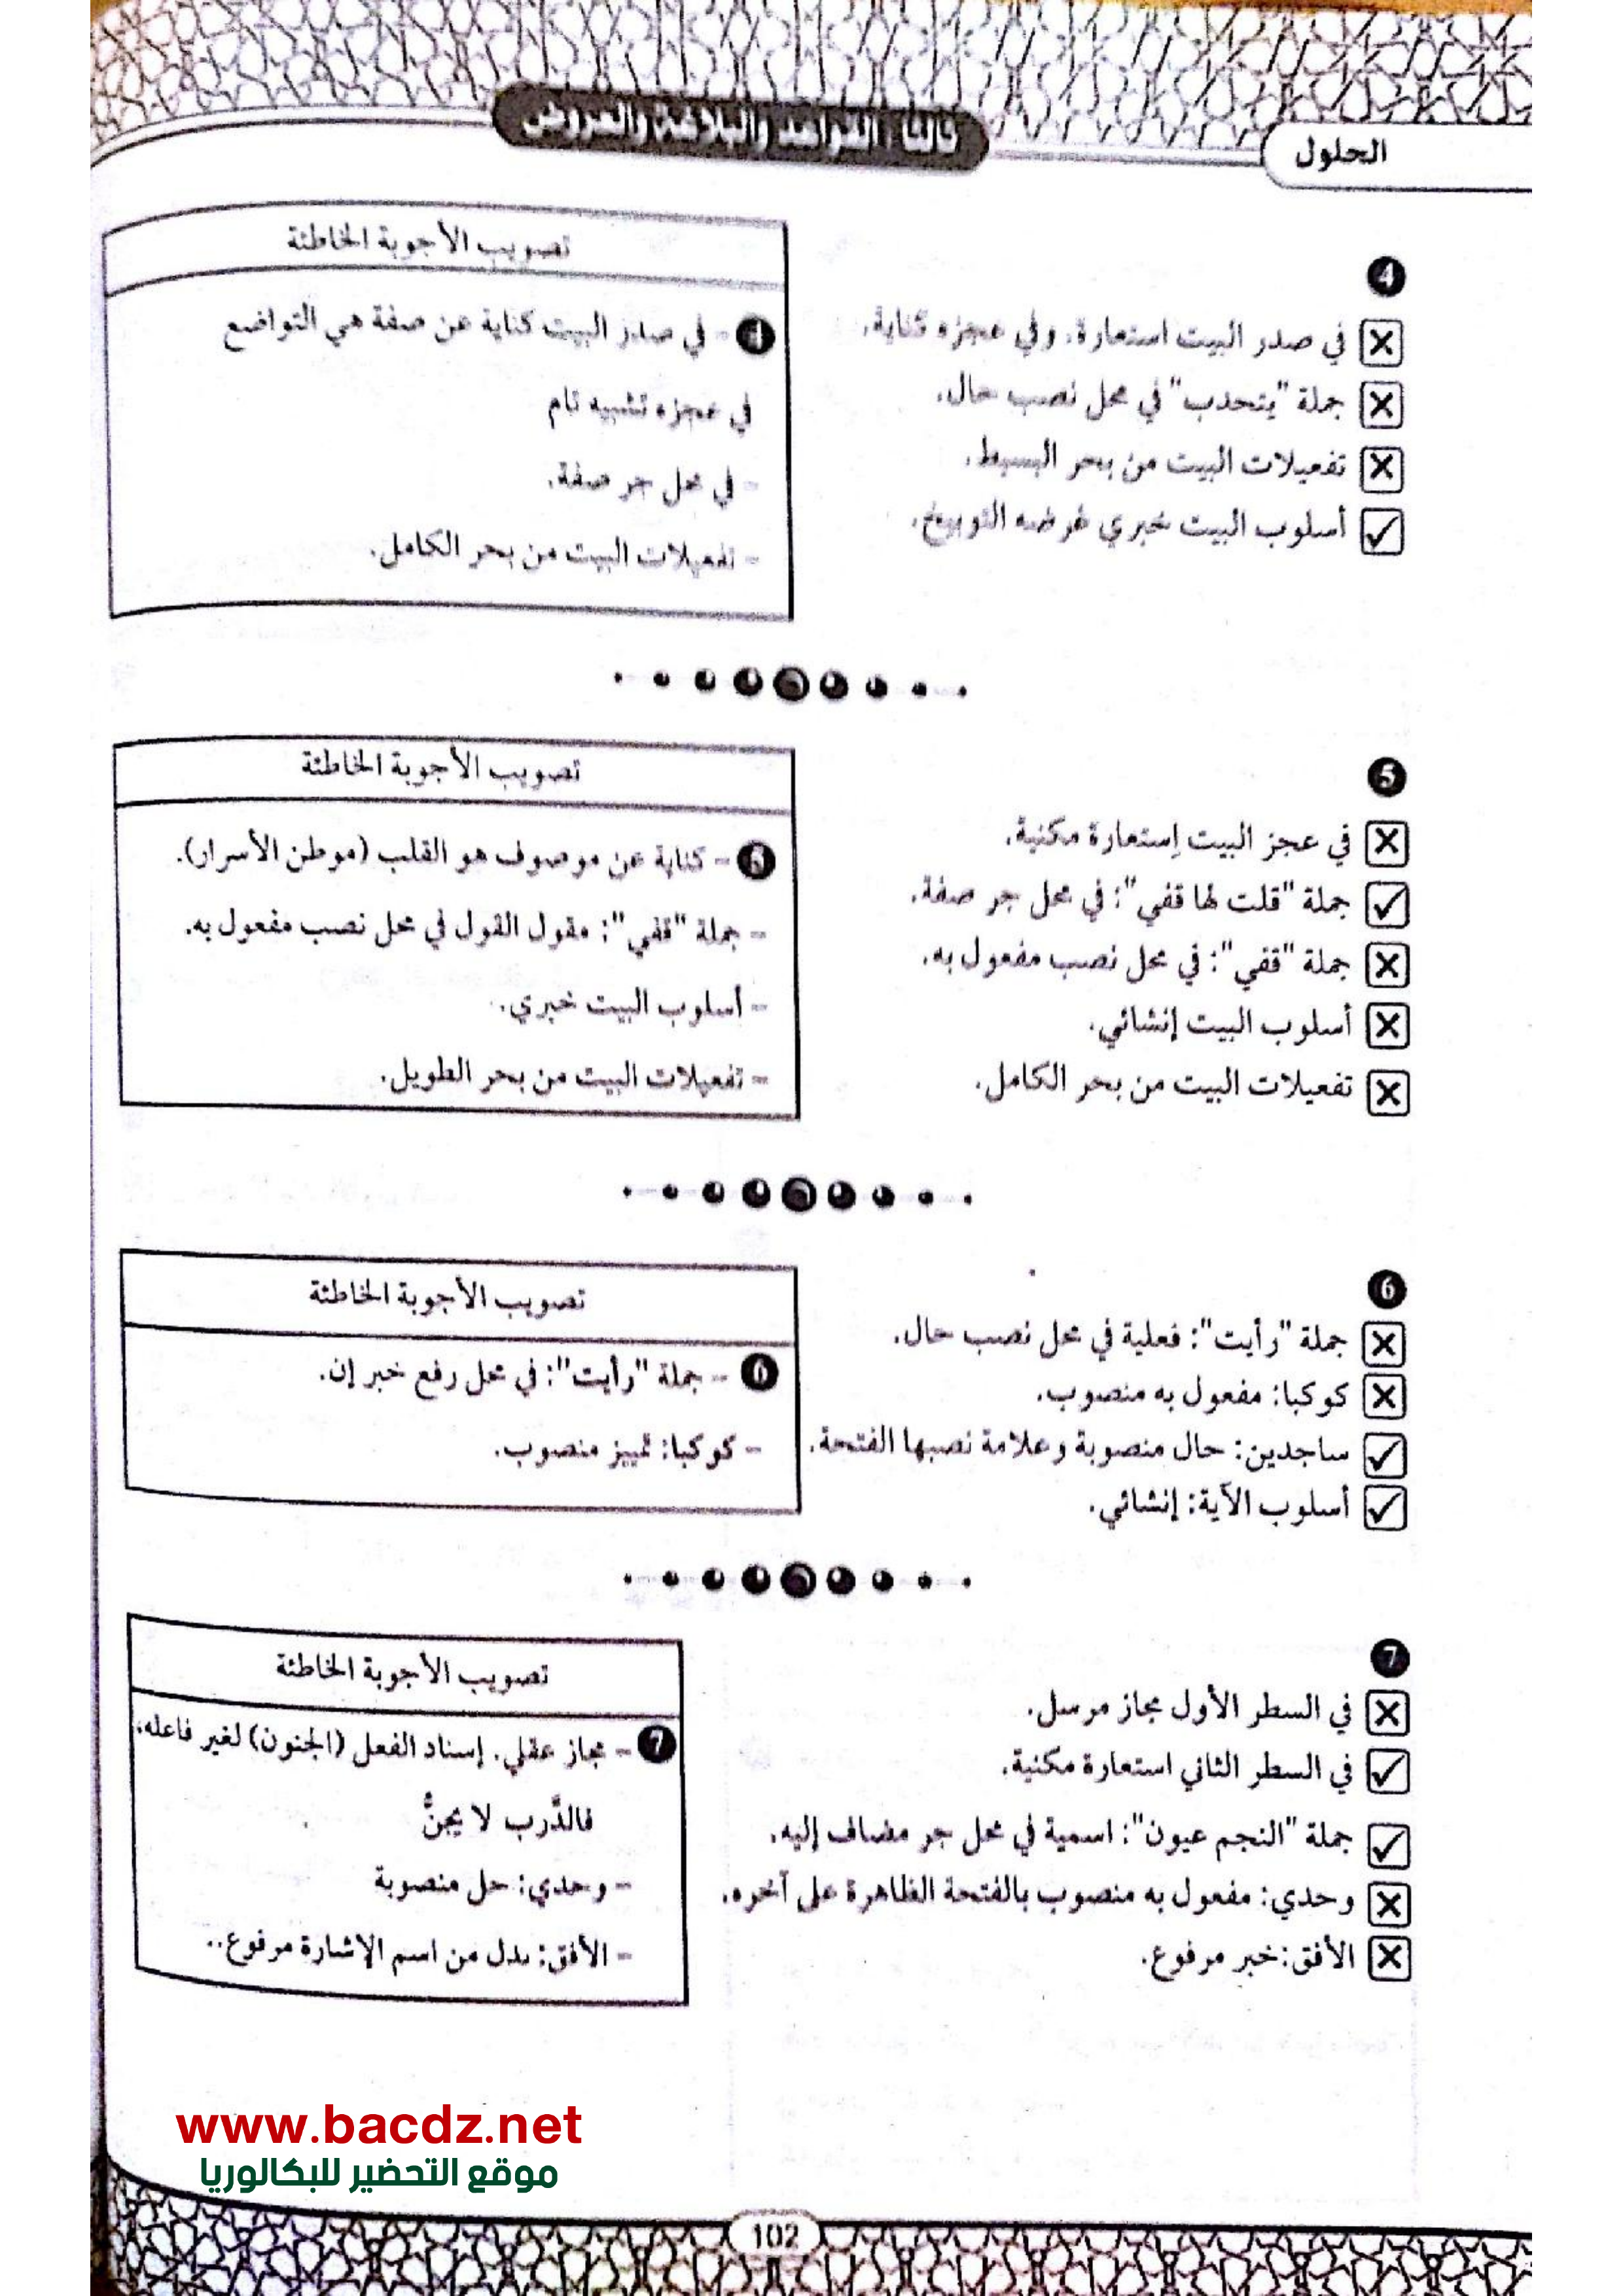 الحلول
ثالثا : القواعد والبلاغة والعروض
4
في صدر البيت استعارة. وفي عجزه كناية.
جملة "يتحدب" في محل نصب حال.
تفعيلات البيت من بحر البسيط.
أسلوب البيت خبري غرضه التوبيخ.
تصويب الأجوبة الخاطئة
4 - في صدر البيت كناية عن صفة هي التواضع
في عجزه تشبيه تام
- في محل جر صفة.
- تفعيلات البيت من بحر الكامل.
5
في عجز البيت إستعارة مكنية.
جملة "قلت لها قفي": في محل جر صفة.
جملة "قفي": في محل نصب مفعول به.
أسلوب البيت إنشائي.
تفعيلات البيت من بحر الكامل.
تصويب الأجوبة الخاطئة
5 - كناية عن موصوف هو القلب (موطن الأسرار).
- جملة "قفي": مقول القول في محل نصب مفعول به.
- أسلوب البيت خبري.
- تفعيلات البيت من بحر الطويل.
6
جملة "رأيت": فعلية في محل نصب حال.
كوكبا: مفعول به منصوب.
ساجدين: حال منصوبة وعلامة نصبها الفتحة.
أسلوب الآية: إنشائي.
تصويب الأجوبة الخاطئة
6 - جملة "رأيت": في محل رفع خبر إن.
- كوكبا: تمييز منصوب.
7
في السطر الأول مجاز مرسل.
في السطر الثاني استعارة مكنية.
جملة "النجم عيون": اسمية في محل جر مضاف إليه.
وحدي: مفعول به منصوب بالفتحة الظاهرة على آخره.
الأفق:خبر مرفوع.
تصويب الأجوبة الخاطئة
7 - مجاز عقلي. إسناد الفعل (الجنون) لغير فاعله،
فالدَّرب لا يجنُّ
- وحدي: حل منصوبة
- الأفق: بدل من اسم الإشارة مرفوع..
www.bacdz.net
موقع التحضير للبكالوريا
102